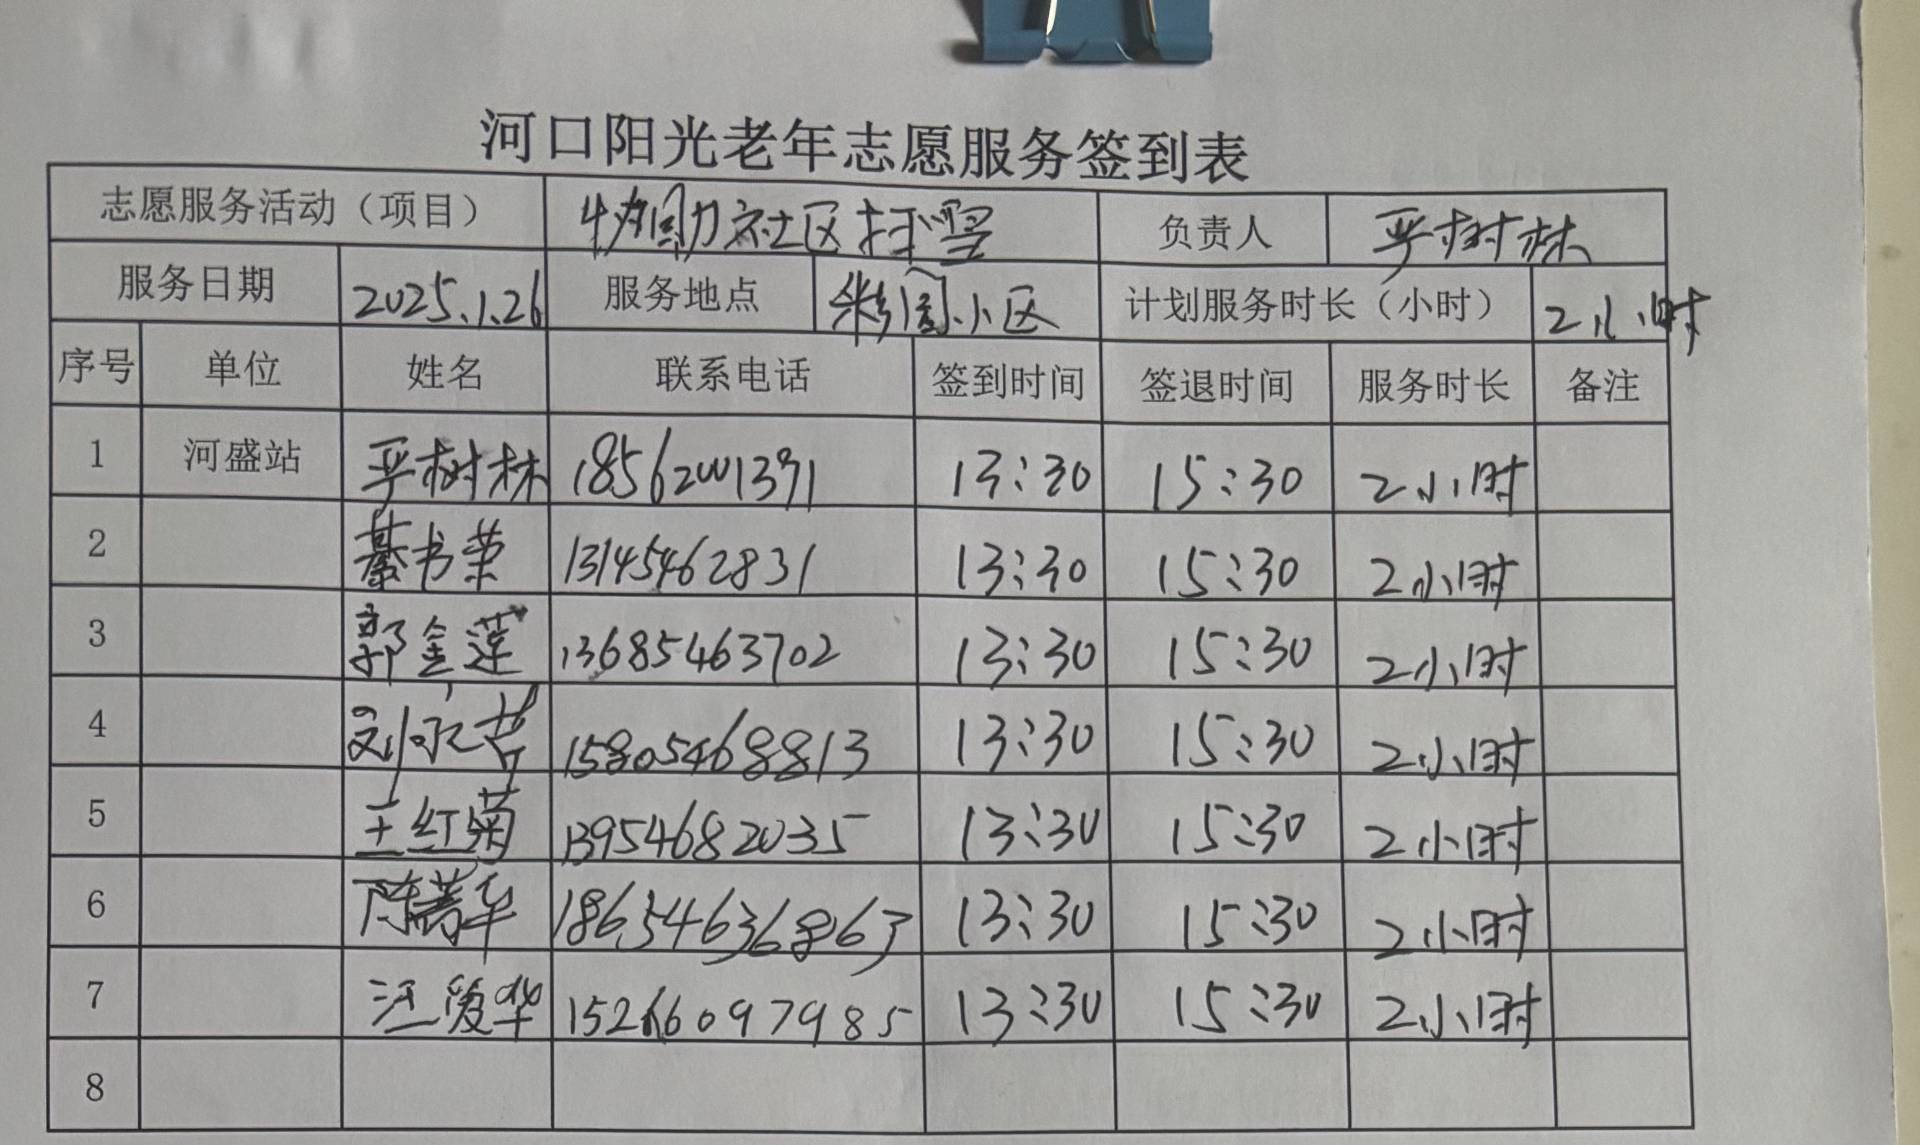 河口阳光老年志愿服务签到表
志愿服务活动（项目） 协助社区扫雪 负责人 平树林
服务日期 2025.1.26 服务地点 小区 计划服务时长（小时） 2小时
序号 单位 姓名 联系电话 签到时间 签退时间 服务时长 备注
1 河盛站 平树林 18562001391 13:30 15:30 2小时
2 綦书荣 13145462831 13:30 15:30 2小时
3 郭金莲 13685463702 13:30 15:30 2小时
4 刘永芳 15805468813 13:30 15:30 2小时
5 王红菊 13954682035 13:30 15:30 2小时
6 陈菁华 18654636863 13:30 15:30 2小时
7 汪爱华 15266097985 13:30 15:30 2小时
8